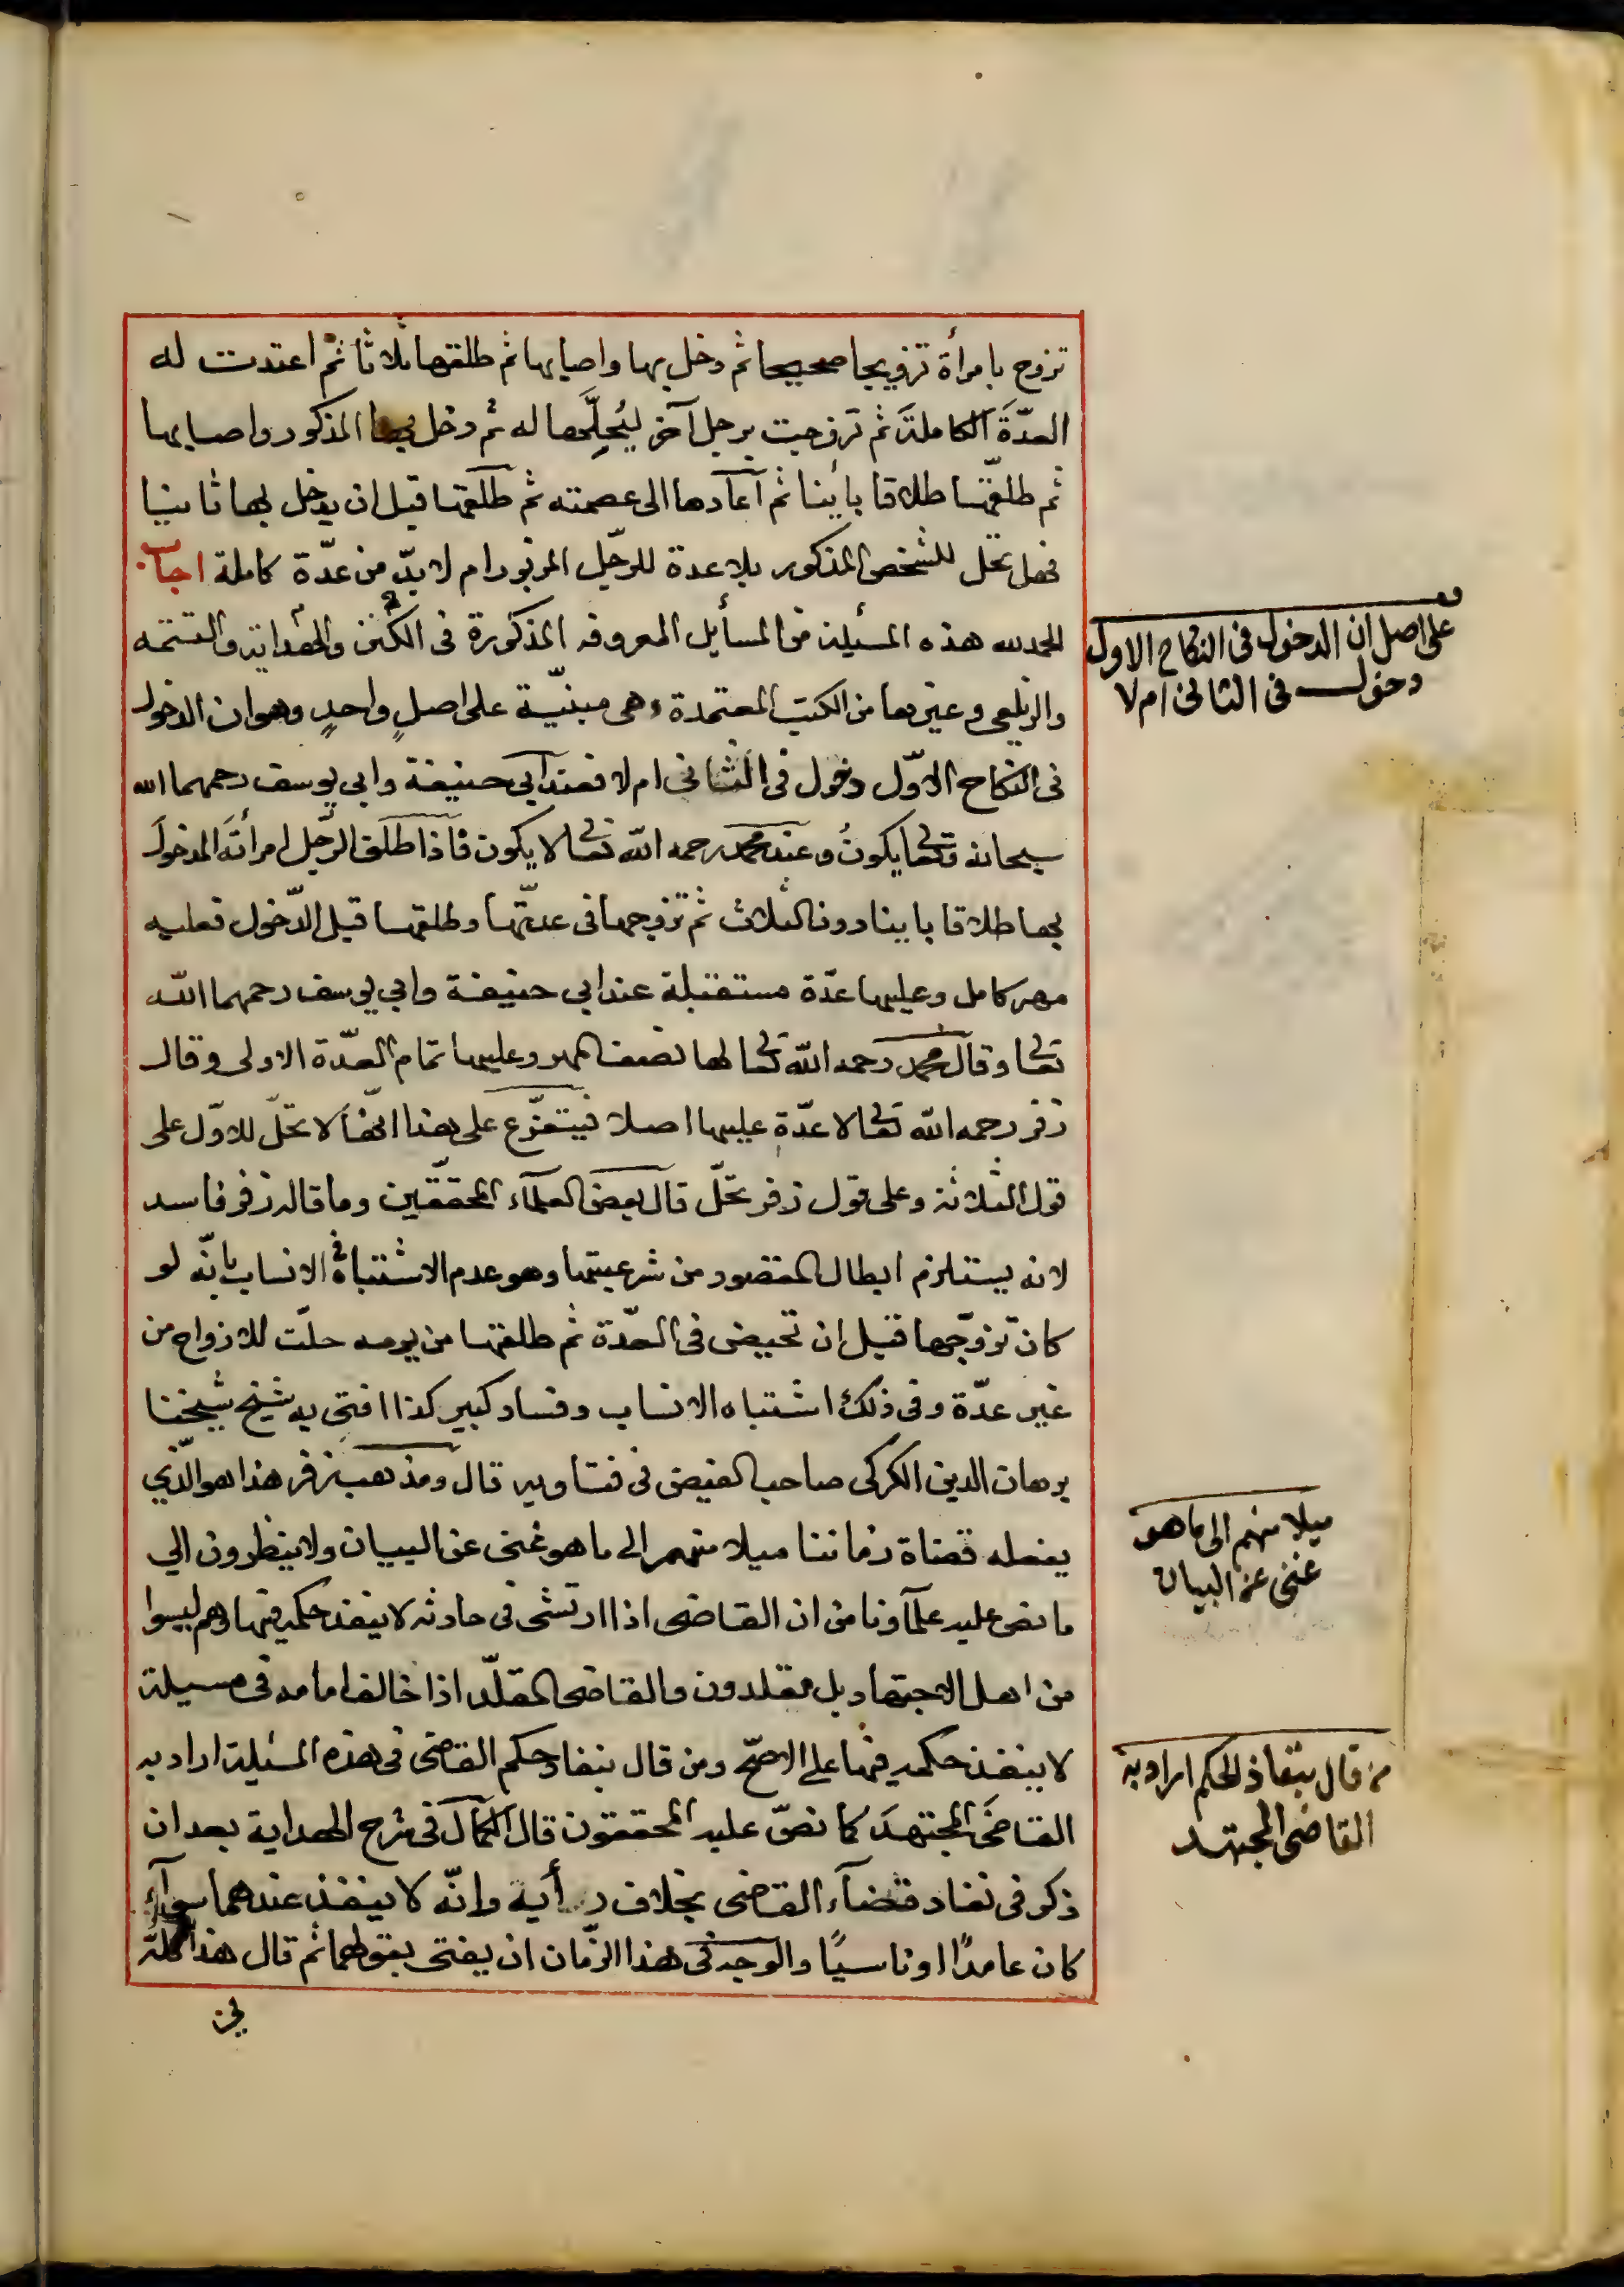 تزوج بامرأة تزويجا صحيحا ثم دخل بها واصابها ثم طلقها ثلاثا ثم اعتدت له
العدّةَ الكاملةَ ثم تزوجت برجل آخر ليُحلِّلها له ثم دخل بها المذكور واصابها
ثم طلّقها طلاقا بائنا ثم آعادها الى عصمته ثم طلّقها قبل ان يدخل بها ثانيا
فهل تحل للشخص المذكور بلا عدة للرّجل المزبور ام لا بدّ من عدّة كاملة اجاب
الحمد لله هذه المسئلة من المسأيل المعروفه المذكورة فى الكنز والهداية والتتمه
والزيلعى وغيرها من الكتب المعتمدة وهى مبنيّة على اصلٍ واحدٍ وهو ان الدخول
فى النكاح الاوّل دخول فى الثانى ام لا فعند ابى حنيفة وابى يوسف رحمهما الله
سبحانه وتعالى يكونُ وعند محمد رحمه الله تعالى لا يكون فاذا طلّق الرّجل امرأتَه المدخولَ
بها طلاقا باينا دون الثلاث ثم تزوجها فى عدّتها وطلقها قبل الدّخول فعليه
مهر كامل وعليها عدّة مستقبلة عند ابى حنيفة وابى يوسف رحمهما الله
تعالى وقال محمد رحمه الله تعالى لها نصف المهر وعليها تمام العدّة الاولى وقال
زفر رحمه الله تعالى لا عدّة عليها اصلا فيتفرّع على هذا انّها لا تحلّ للاوّل على
قول الثلاثة وعلى قول زفر تحلّ قال بعض العلمآء المحققّين وما قاله زفر فاسد
لانه يستلزم ابطال المقصود من شرعيتها وهو عدم الاشتباه فى الانساب بانّه لو
كان تزوّجها قبل ان تحيض فى العدّة ثم طلقها من يومه حلّت للازواج من
غير عدّة وفى ذلك اشتباه الانساب وفساد كبير كذا افتى به شيخ شيخنا
برهان الدين الكركى صاحب الفيض فى فتاويه قال ومذهب زفر هذا هو الّذى
يفعله قضاة زماننا ميلا منهم الى ما هو غنى عن البيان ولا ينظرون الى
ما نص عليه علمآونا من ان القاضى اذا ارتشى فى حادثه لا ينفذ حكمه فيها وهم ليسوا
من اهل الاجتهاد بل مقلدون والقاضى المقلّد اذا خالف امامه فى مسيلة
لا ينفذ حكمه فيها على الاصحّ ومن قال بنفاذ حكم القاضى فى هذه المسئيلة اراد به
القاضىَ المجتهدَ كما نصّ عليه المحققون قال الكمال فى شرح الهداية بعد ان
ذكر فى نفاد قضآء القاضى بخلاف رأيه وانّه لا ينفذ عندهما سوآء
كان عامدًا او ناسيًا والوجه فى هذا الزّمان ان يفتى بقولهما ثم قال هذا كلّه
على اصل ان الدخول فى النكاح الاول
دخول فى الثانى ام لا
ميلا منهم الى ما هو
غنى عن البيان
من قال بنفاذ الحكم اراد به
القاضى المجتهد